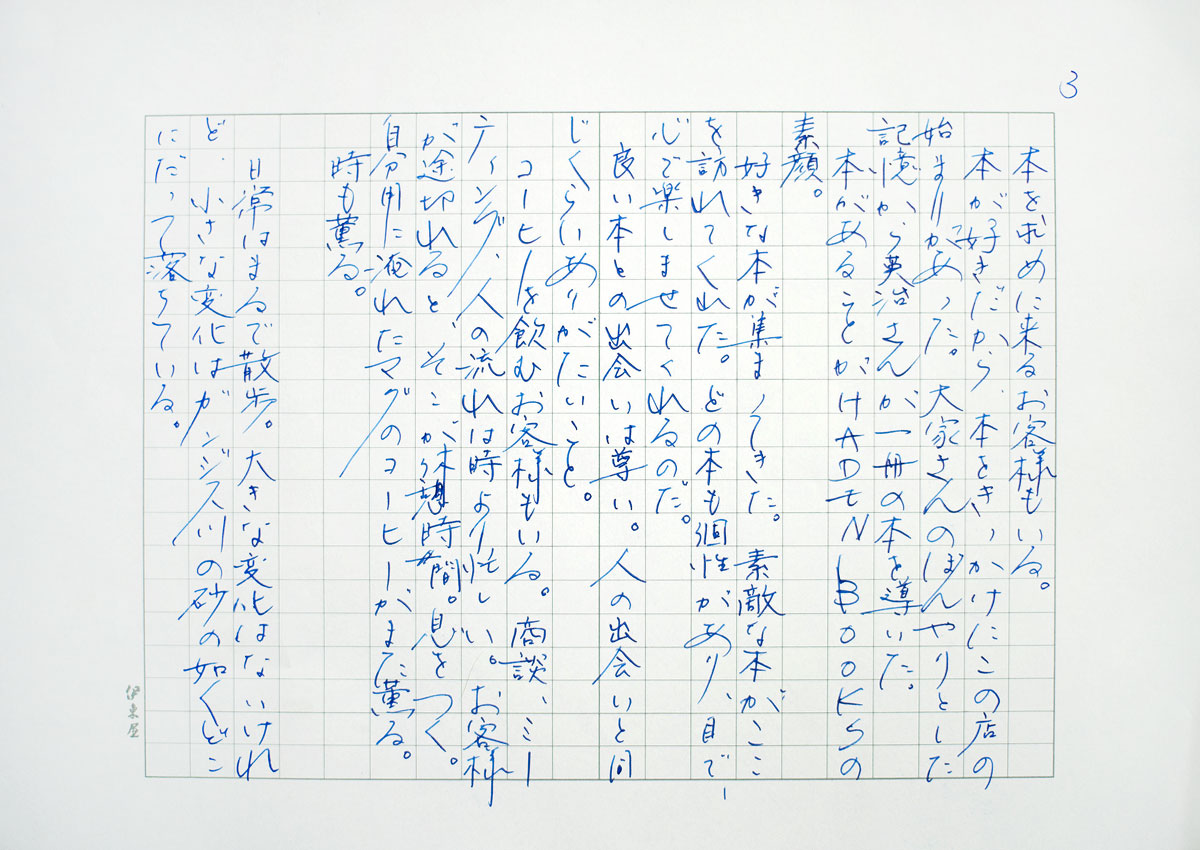 3
本を求めに来るお客様もいる。
本が好きだから、本をきっかけにこの店の
始まりがあった。大家さんのぼんやりとした
記憶から英治さんが一冊の本を導いた。
本があることがHADEN BOOKSの
素顔。
好きな本が集まってきた。素敵な本がここ
を訪れてくれた。どの本も個性があり、目で、
心で楽しませてくれるのだ。
良い本との出会いは尊い。人の出会いと同
じくらいありがたいこと。
コーヒーを飲むお客様もいる。商談、ミー
ティング、人の流れは時より忙しい。お客様
が途切れると、そこが休憩時間。息をつく。
自分用に淹れたマグのコーヒーがまた薫る。
時も薫る。
日常はまるで散歩。大きな変化はないけれ
ど、小さな変化はガンジス川の砂の如くどこ
にだって落ちている。
伊東屋